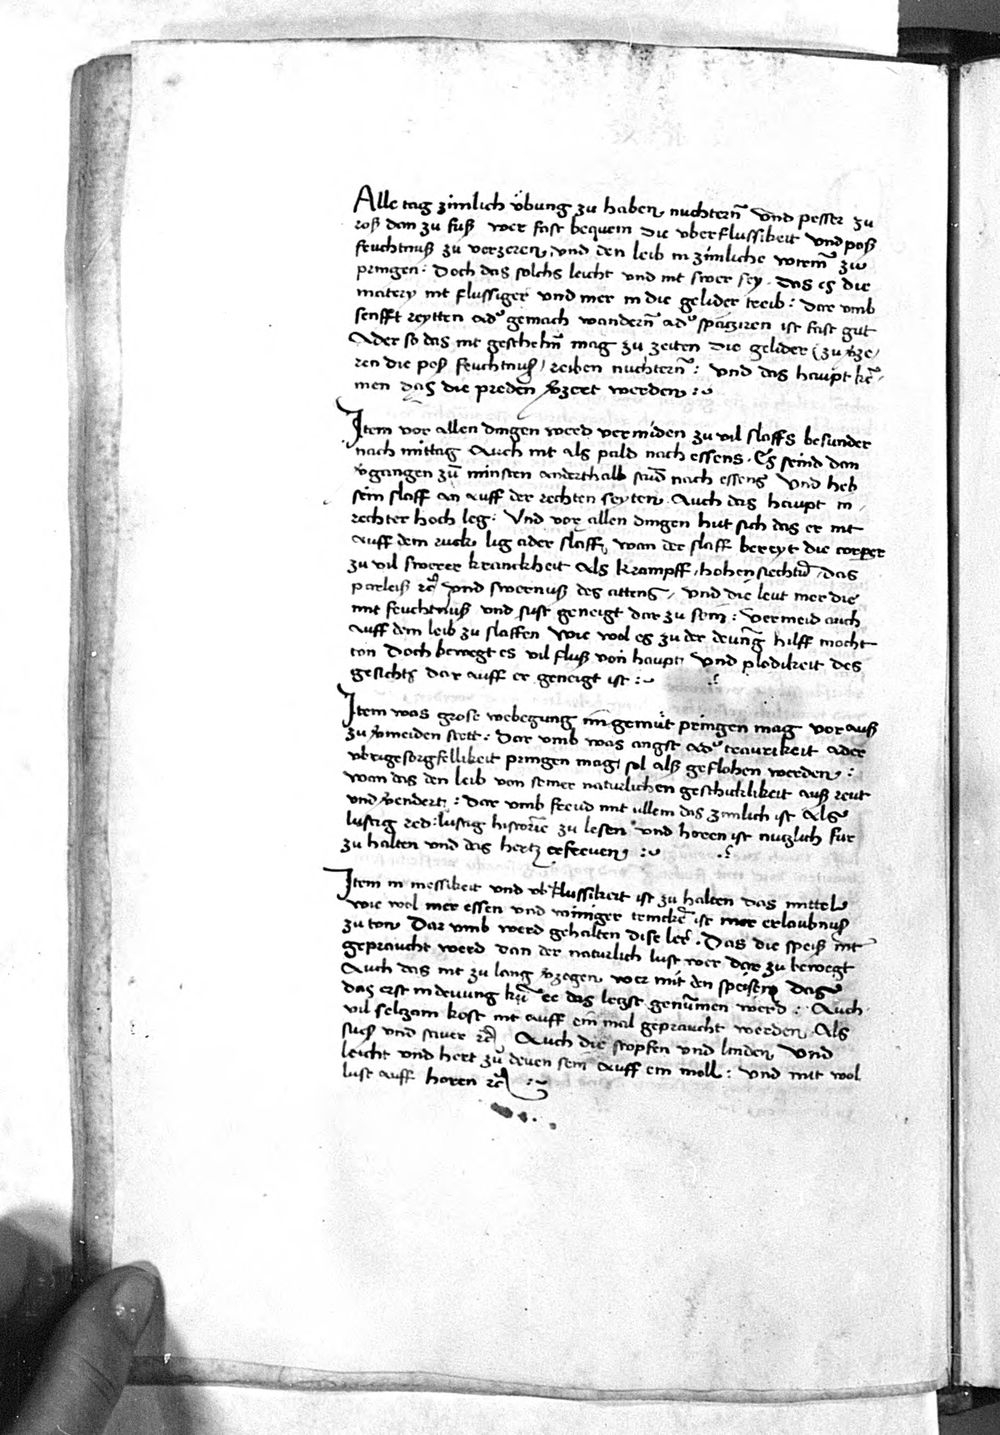 Alle tag zimlich vbung zu haben nuchtern̄ vnd pesser zu
roß dan zu fuß wer fast bequem die vberflussikeit vnd poß
feuchtnuß zu verzeren, vnd den leib in zimliche wirem̄ zu
pringen: Doch das solchs leicht vnd nit swer sey. das es die
matery nit flussiger vnd mer in die gelider treib: Dar vmb
senfft reytten ad' gemach wandern̄ ad' spatziren ist fast gut
Ader so das nit geschehn̄ mag zu zeiten die gelider (zu v'ze/
ren die poß feuchtnuß / reiben nuchtern̄: vnd das haupt kē/
men das die preden v'zert werden :~
Item vor allen dingen werd vermiden zu vil slaffs besunder
nach mittag Auch nit als pald nach essens. Es seind dan
v'gangen zū minsten anderthalb stūd nach essens Vnd heb
sein slaff an auff der rechten seyten. Auch das haupt in
rechter hoch leg: Vnd vor allen dingen hut sich das er nit
auff dem ruck lig ader slaff, wan der slaff bereyt die corper
zu vil swerer kranckheit Als krampff, hohensiechtū, das
parleiß rc' vnd swernuß des attens, vnd die leut mer die
mit feuchtnuß vnd sust geneigt dar zu sein: Vermeid auch
auff dem leib zu slaffen Wie wol es zu der deuūg hilff mocht
ton Doch bewegt es vil fluß von haupt Vnd plodikeit des
gesichts dar auff er geneigt ist :~
Item was grose webegung im gemut pringen mag vor auß
zu v'meiden stett: Dar vmb was angst ad' traurikeit ader
vbrige sorgfellikeit pringen mag sol alß geflohen werden:
wan das den leib von seiner naturlichen geschicklikeit auß reut
vnd v'endert: Dar vmb freud mit allem das zimlich ist Als
lustig red: lustig historie zu lesen vnd horen ist nutzlich fur
zu halten vnd das hertz erfreuen :~
Item in messikeit vnd vb'flussikeit ist zu halten das mittel
wie wol mer essen vnd winiger trincke ist mer erlaubnuß
zu ton Dar vmb werd gehalten dise ler. Das die speiß nit
gepraucht werd dan der naturlich lust wer dar zu bewegt
Auch das nit zu lang v'zogen wer mit den speisen Das
das erst in deuung kū ee das letzst genūmen werd: Auch
vil seltzam kost nit auff ein mal gepraucht werden Als
suß vnd sauer rc' Auch die stopfen vnd linden Vnd
leicht vnd hert zū deuen sein auff ein moll: Vnd mit wol
lust auff horen rc' :~